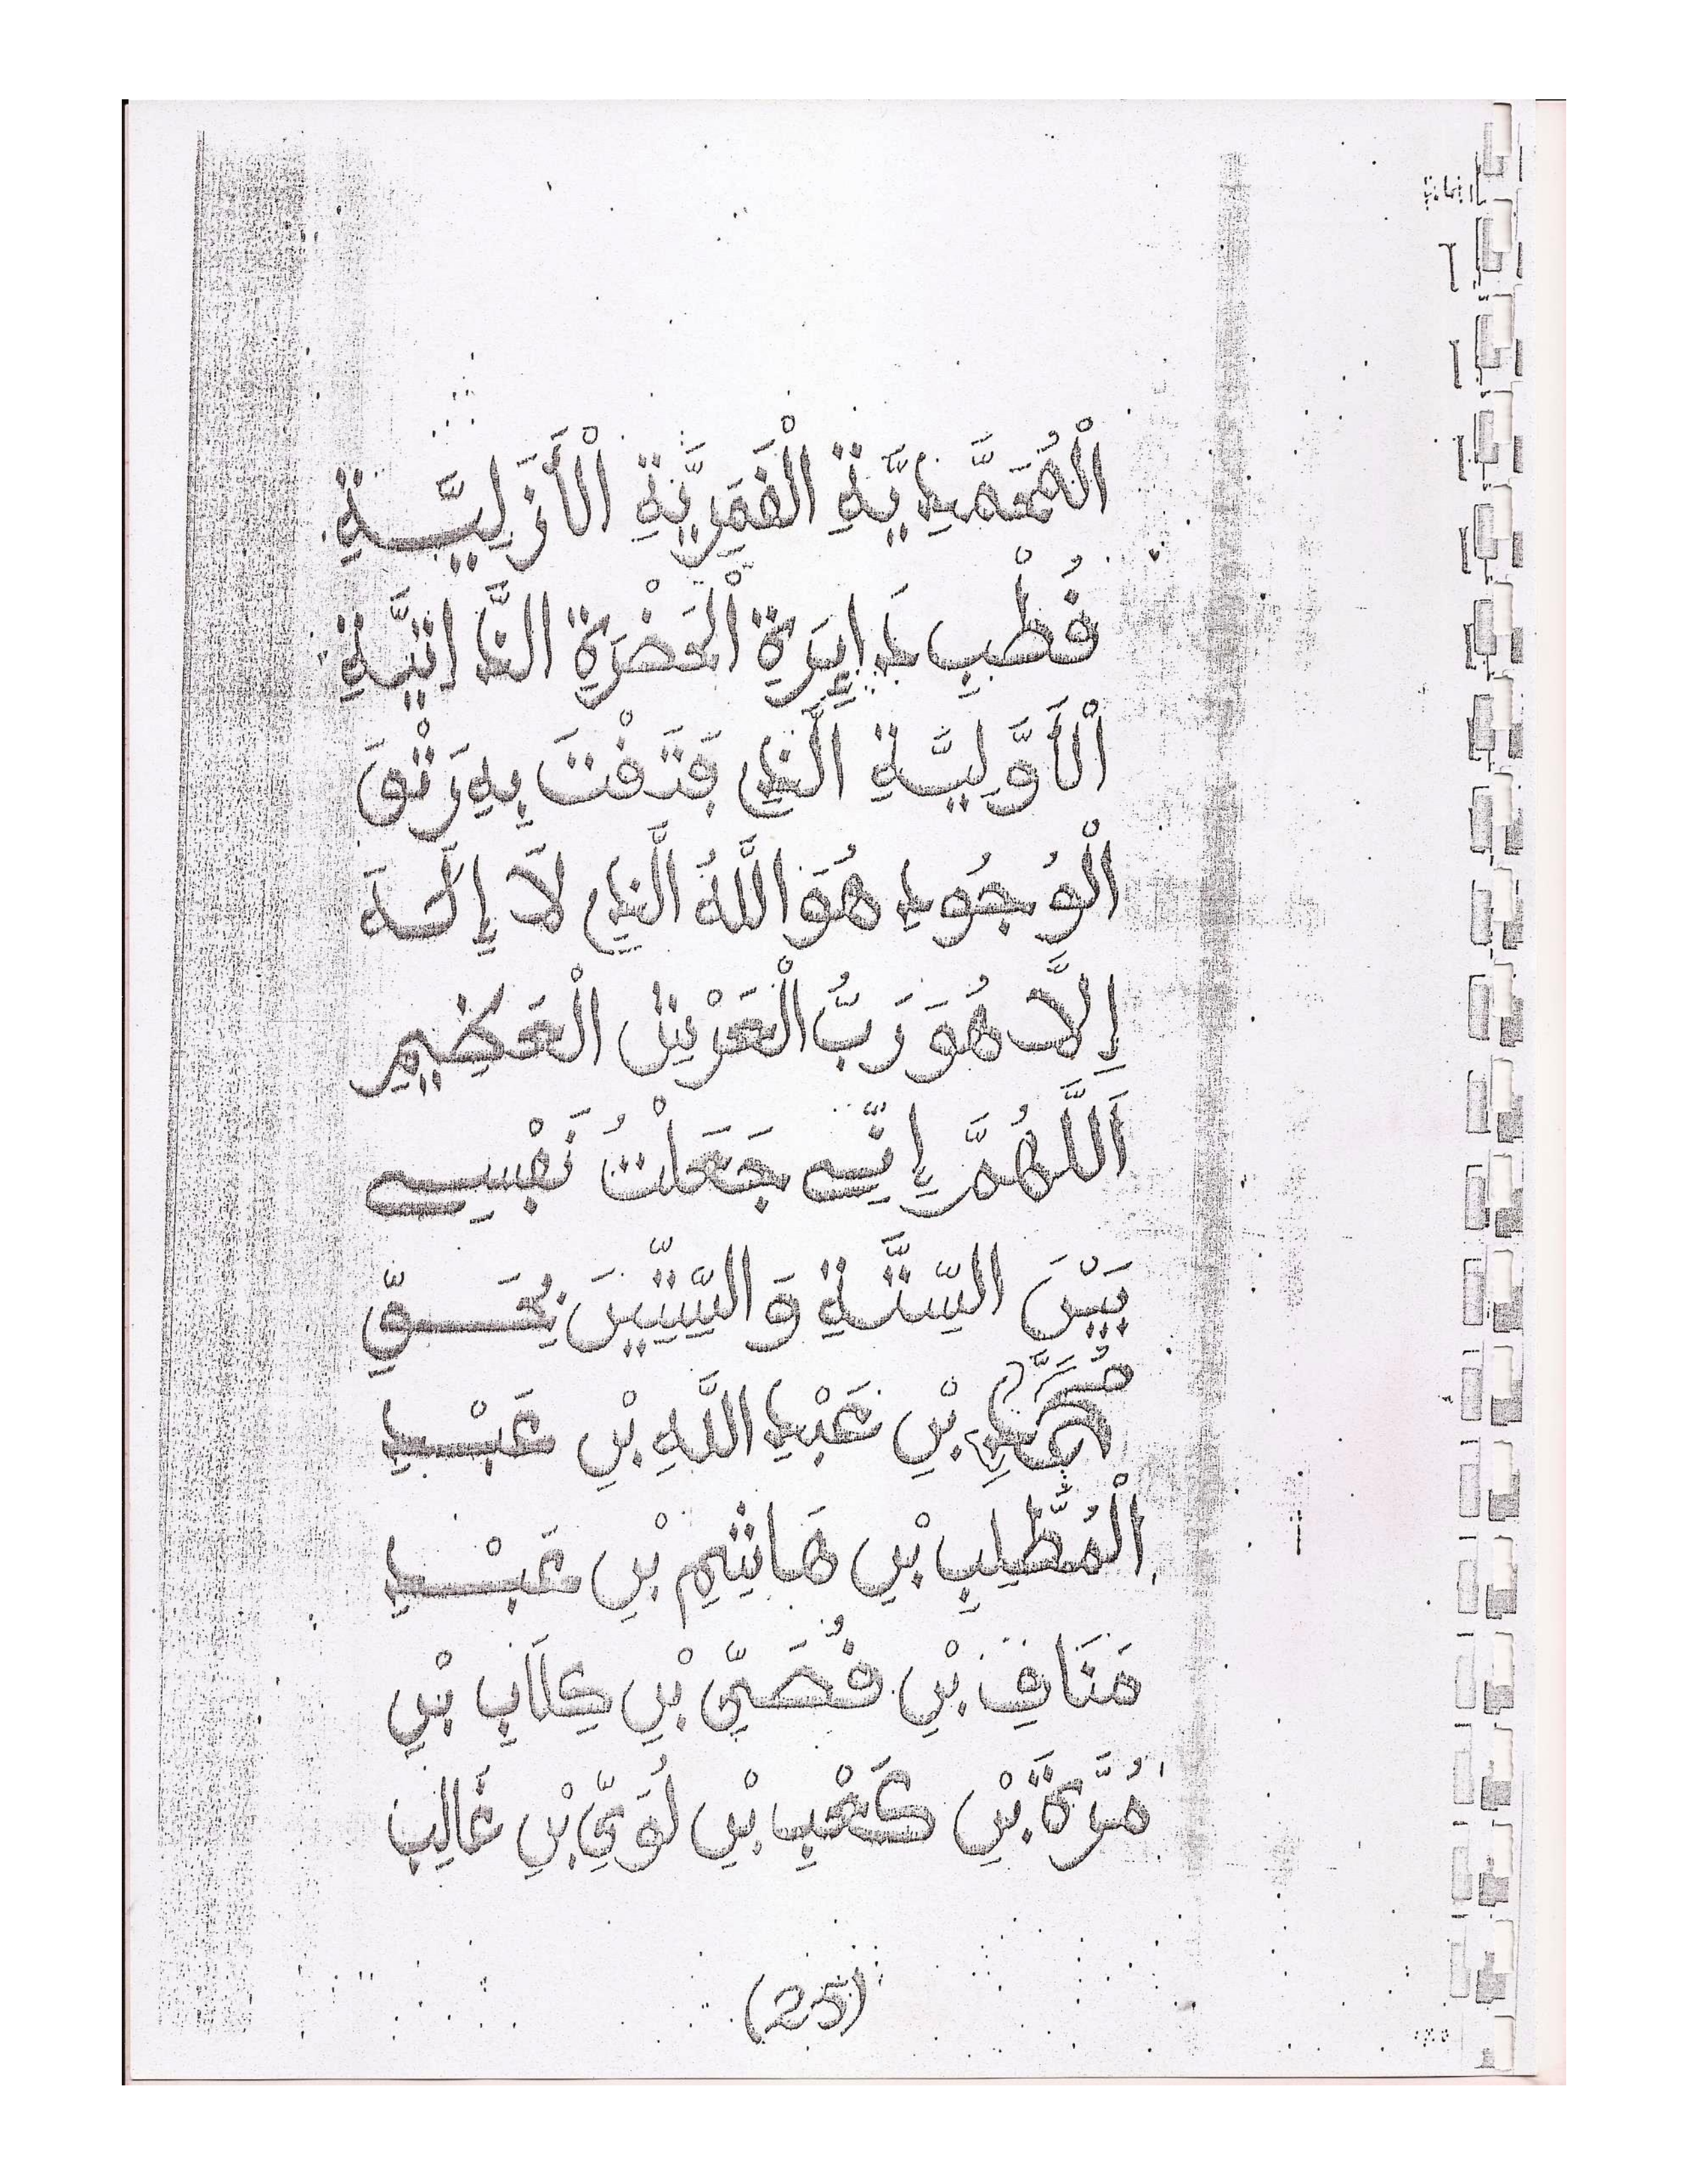 الْمُحَمَّدِيَّةِ الْقَمَرِيَّةِ الْأَزَلِيَّةِ
قُطْبِ دَايِرَةِ الْحَضْرَةِ الذَّاتِيَّةِ
الْأَوَّلِيَّةِ الَّذِي فَتَقْتَ بِهِ رَتْقَ
الْوُجُودِ هُوَ اللَّهُ الَّذِي لَا إِلَٰهَ
إِلَّا هُوَ رَبُّ الْعَرْشِ الْعَظِيمِ
اَللَّهُمَّ إِنِّي جَعَلْتُ نَفْسِي
بَيْنَ السِّتَّةِ وَالسِّتِّينَ بِحَقِّ
مُحَمَّدِ بْنِ عَبْدِ اللَّهِ بْنِ عَبْدِ
الْمُطَّلِبِ بْنِ هَاشِمِ بْنِ عَبْدِ
مَنَافِ بْنِ قُصَيِّ بْنِ كِلَابِ بْنِ
مُرَّةَ بْنِ كَعْبِ بْنِ لُوَيِّ بْنِ غَالِبِ
(25)